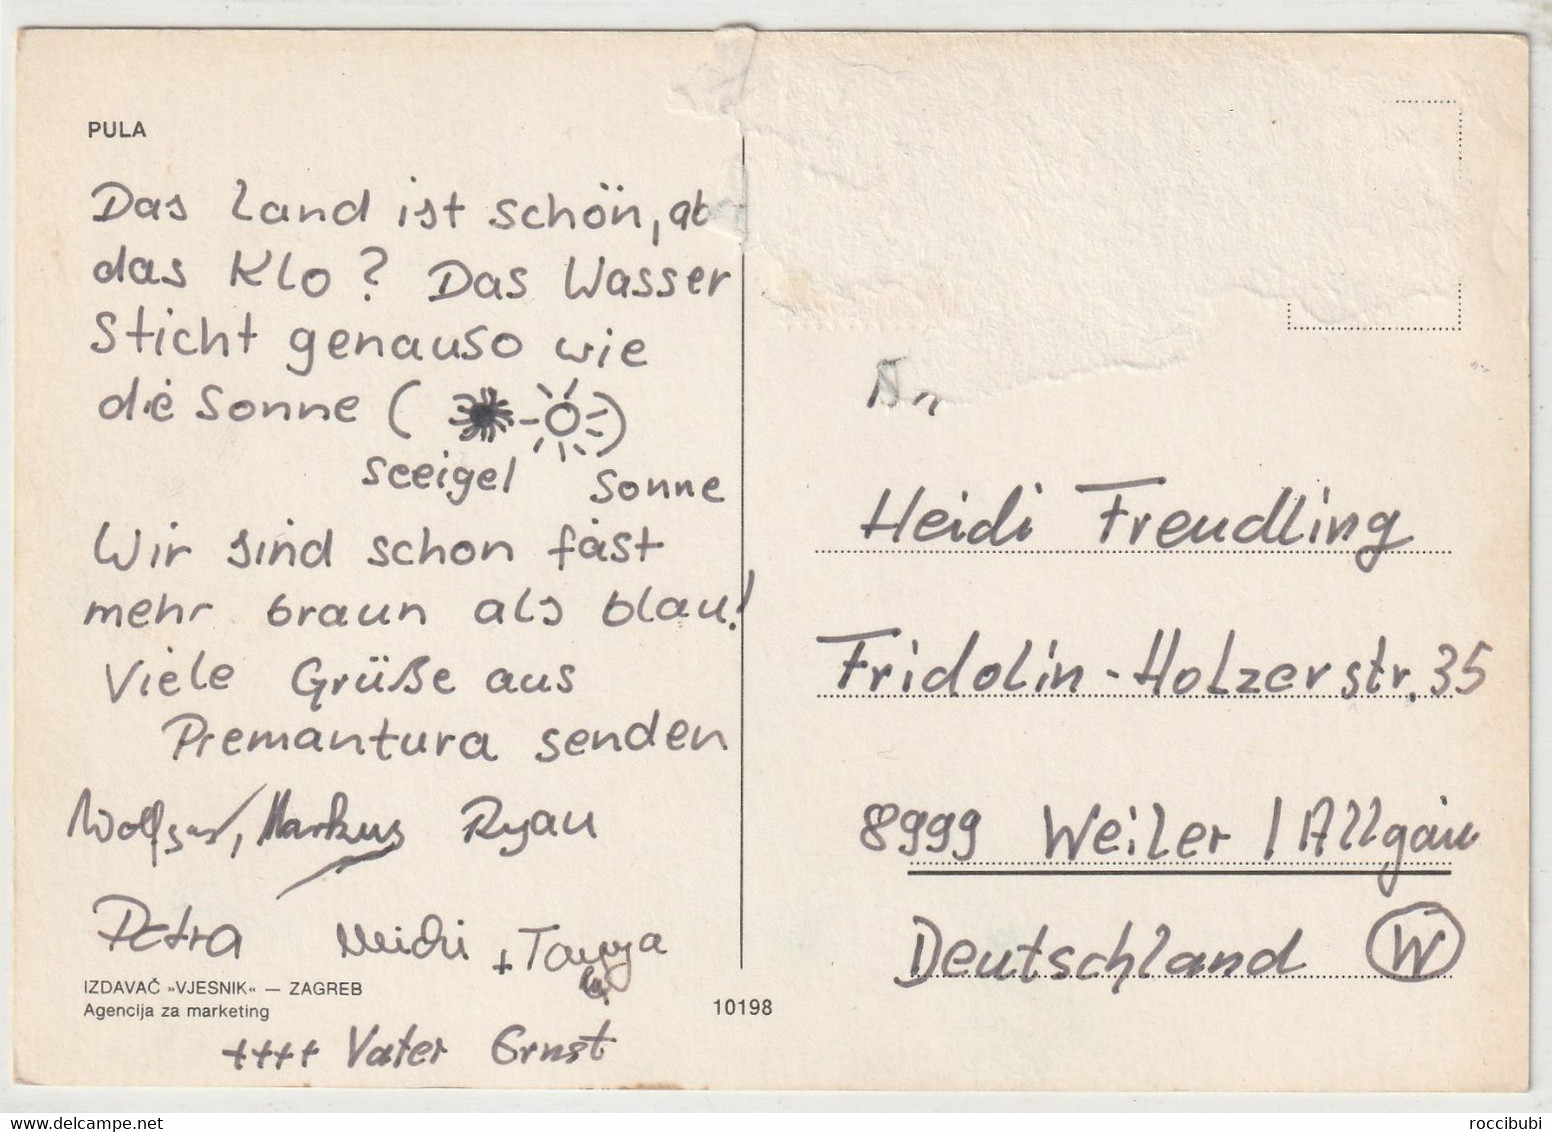 PULA
Das Land ist schön, ab
das Klo? Das Wasser
sticht genauso wie
die Sonne ( - )
Seeigel Sonne
Wir sind schon fast
mehr braun als blau!
Viele Grüße aus
Premantura senden
Wolfgang, Markus Ryan
Petra Heidi + Tanya
IZDAVAČ »VJESNIK« — ZAGREB
Agencija za marketing
++++ Vater Ernst
10198
Heidi Freudling
Fridolin-Holzerstr. 35
8999 Weiler / Allgäu
Deutschland W
roccibubi